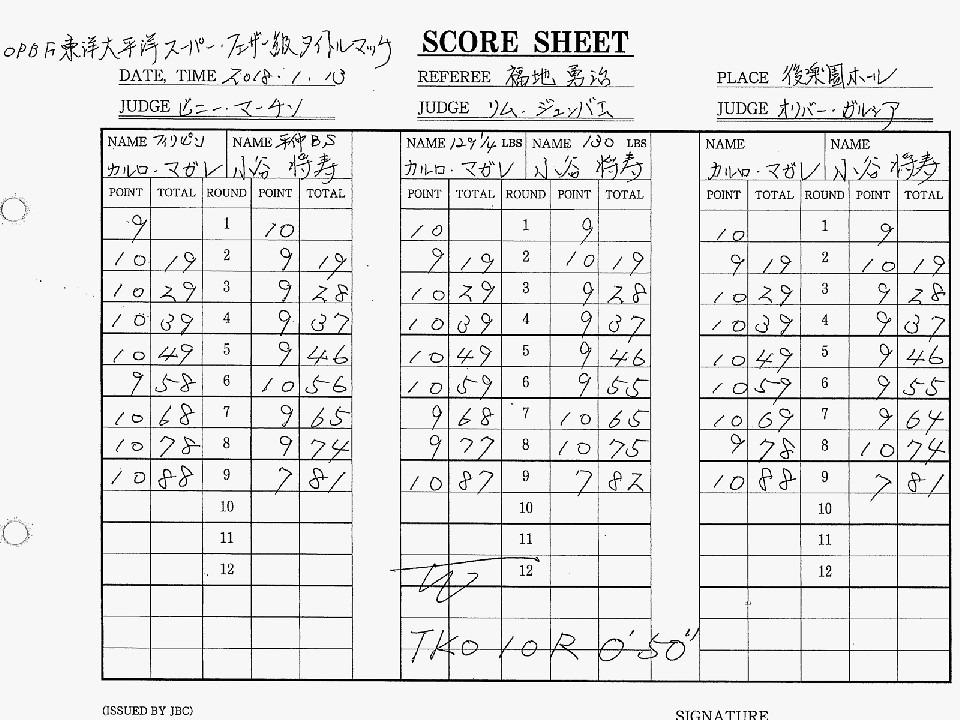 OPBF東洋大平洋スーパー・フェザー級タイトルマッチ SCORE SHEET
DATE, TIME 2018.1.13 REFEREE 福地 勇治 PLACE 後楽園ホール
JUDGE ビニー・マーチン JUDGE リム・ジュンバエ JUDGE オリバー・ガルシア
NAME フィリピン NAME 平仲BS NAME 129 1/4 LBS NAME 130 LBS NAME NAME
カルロ・マガレ 小谷 将寿 カルロ・マガレ 小谷 将寿 カルロ・マガレ 小谷 将寿
POINT TOTAL ROUND POINT TOTAL POINT TOTAL ROUND POINT TOTAL POINT TOTAL ROUND POINT TOTAL
9 1 10 10 1 9 10 1 9
10 19 2 9 19 9 19 2 10 19 9 19 2 10 19
10 29 3 9 28 10 29 3 9 28 10 29 3 9 28
10 39 4 9 37 10 39 4 9 37 10 39 4 9 37
10 49 5 9 46 10 49 5 9 46 10 49 5 9 46
9 58 6 10 56 10 59 6 9 55 10 59 6 9 55
10 68 7 9 65 9 68 7 10 65 10 69 7 9 64
10 78 8 9 74 9 77 8 10 75 9 78 8 10 74
10 88 9 7 81 10 87 9 7 82 10 88 9 7 81
10 10 10
11 11 11
12 12 12
TKO 10R 0'50"
(ISSUED BY JBC) SIGNATURE